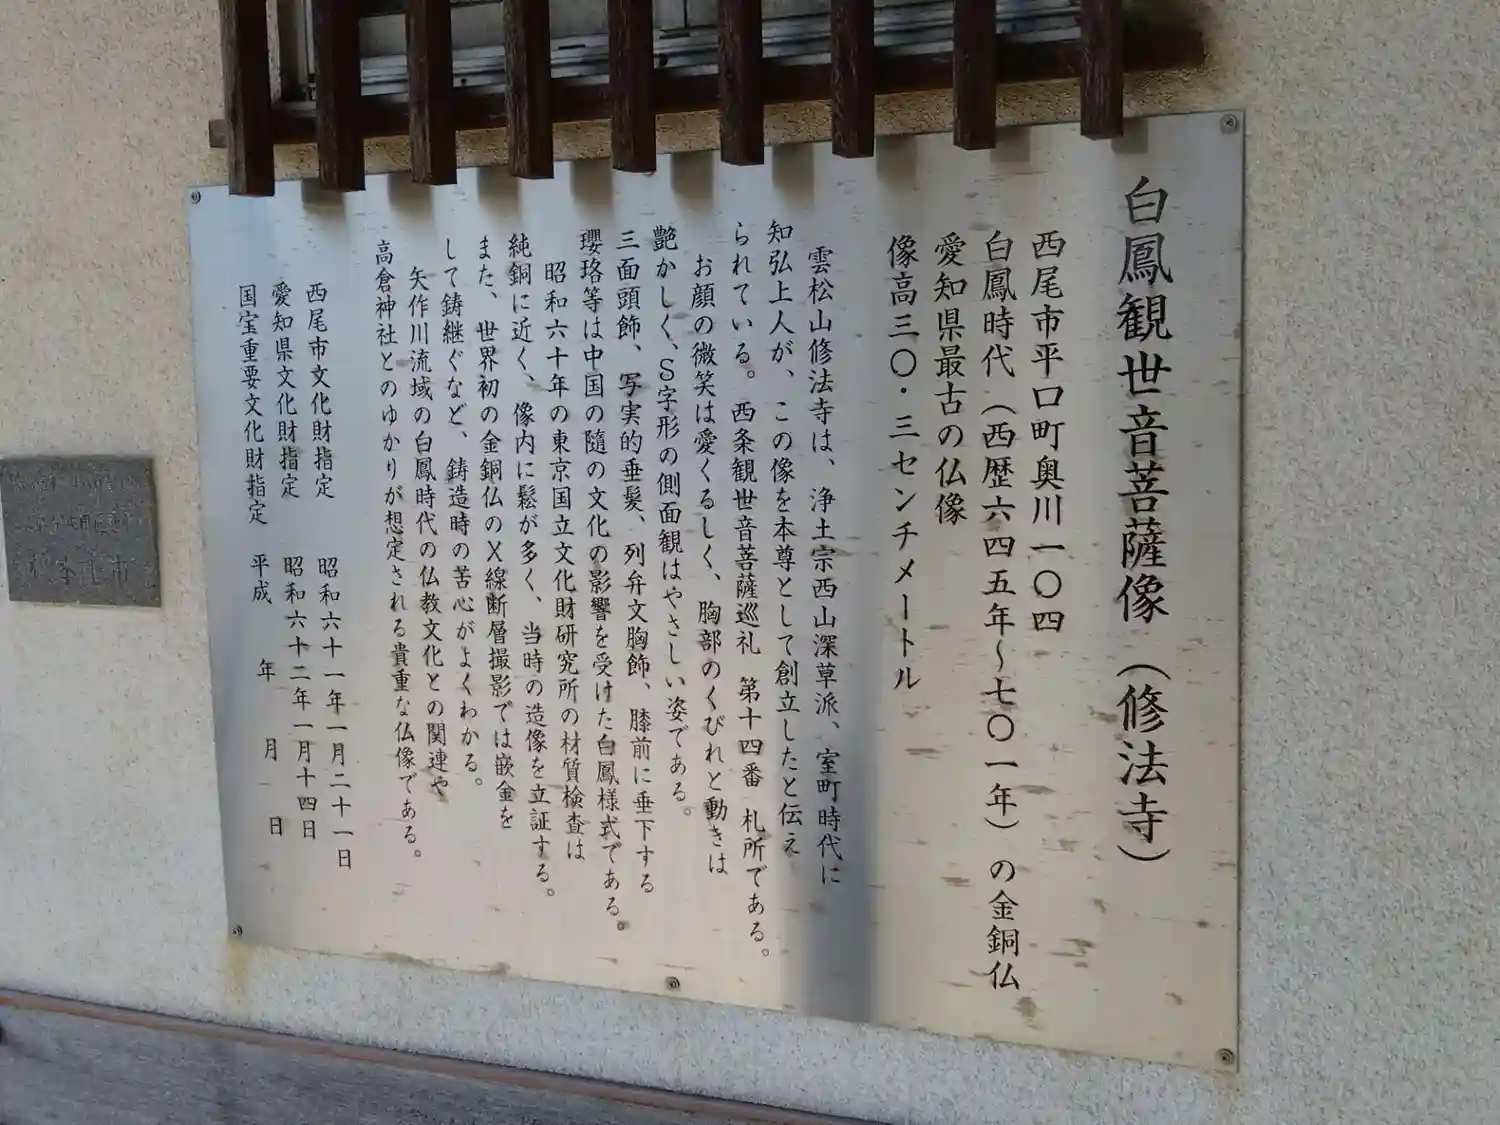 白鳳観世音菩薩像（修法寺）
西尾市平口町奥川一〇四
白鳳時代（西歴六四五年～七〇一年）の金銅仏
愛知県最古の仏像
像高三〇・三センチメートル
雲松山修法寺は、浄土宗西山深草派、室町時代に
知弘上人が、この像を本尊として創立したと伝え
られている。西条観世音菩薩巡礼　第十四番　札所である。
お顔の微笑は愛くるしく、胸部のくびれと動きは
艶かしく、S字形の側面観はやさしい姿である。
三面頭飾、写実的垂髪、列弁文胸飾、膝前に垂下する
瓔珞等は中国の隨の文化の影響を受けた白鳳様式である。
昭和六十年の東京国立文化財研究所の材質検査は
純銅に近く、像内に鬆が多く、当時の造像を立証する。
また、世界初の金銅仏のX線断層撮影では嵌金を
して鋳継ぐなど、鋳造時の苦心がよくわかる。
矢作川流域の白鳳時代の仏教文化との関連や
高倉神社とのゆかりが想定される貴重な仏像である。
西尾市文化財指定　昭和六十一年一月二十一日
愛知県文化財指定　昭和六十二年一月十四日
国宝重要文化財指定　平成　年　月　日